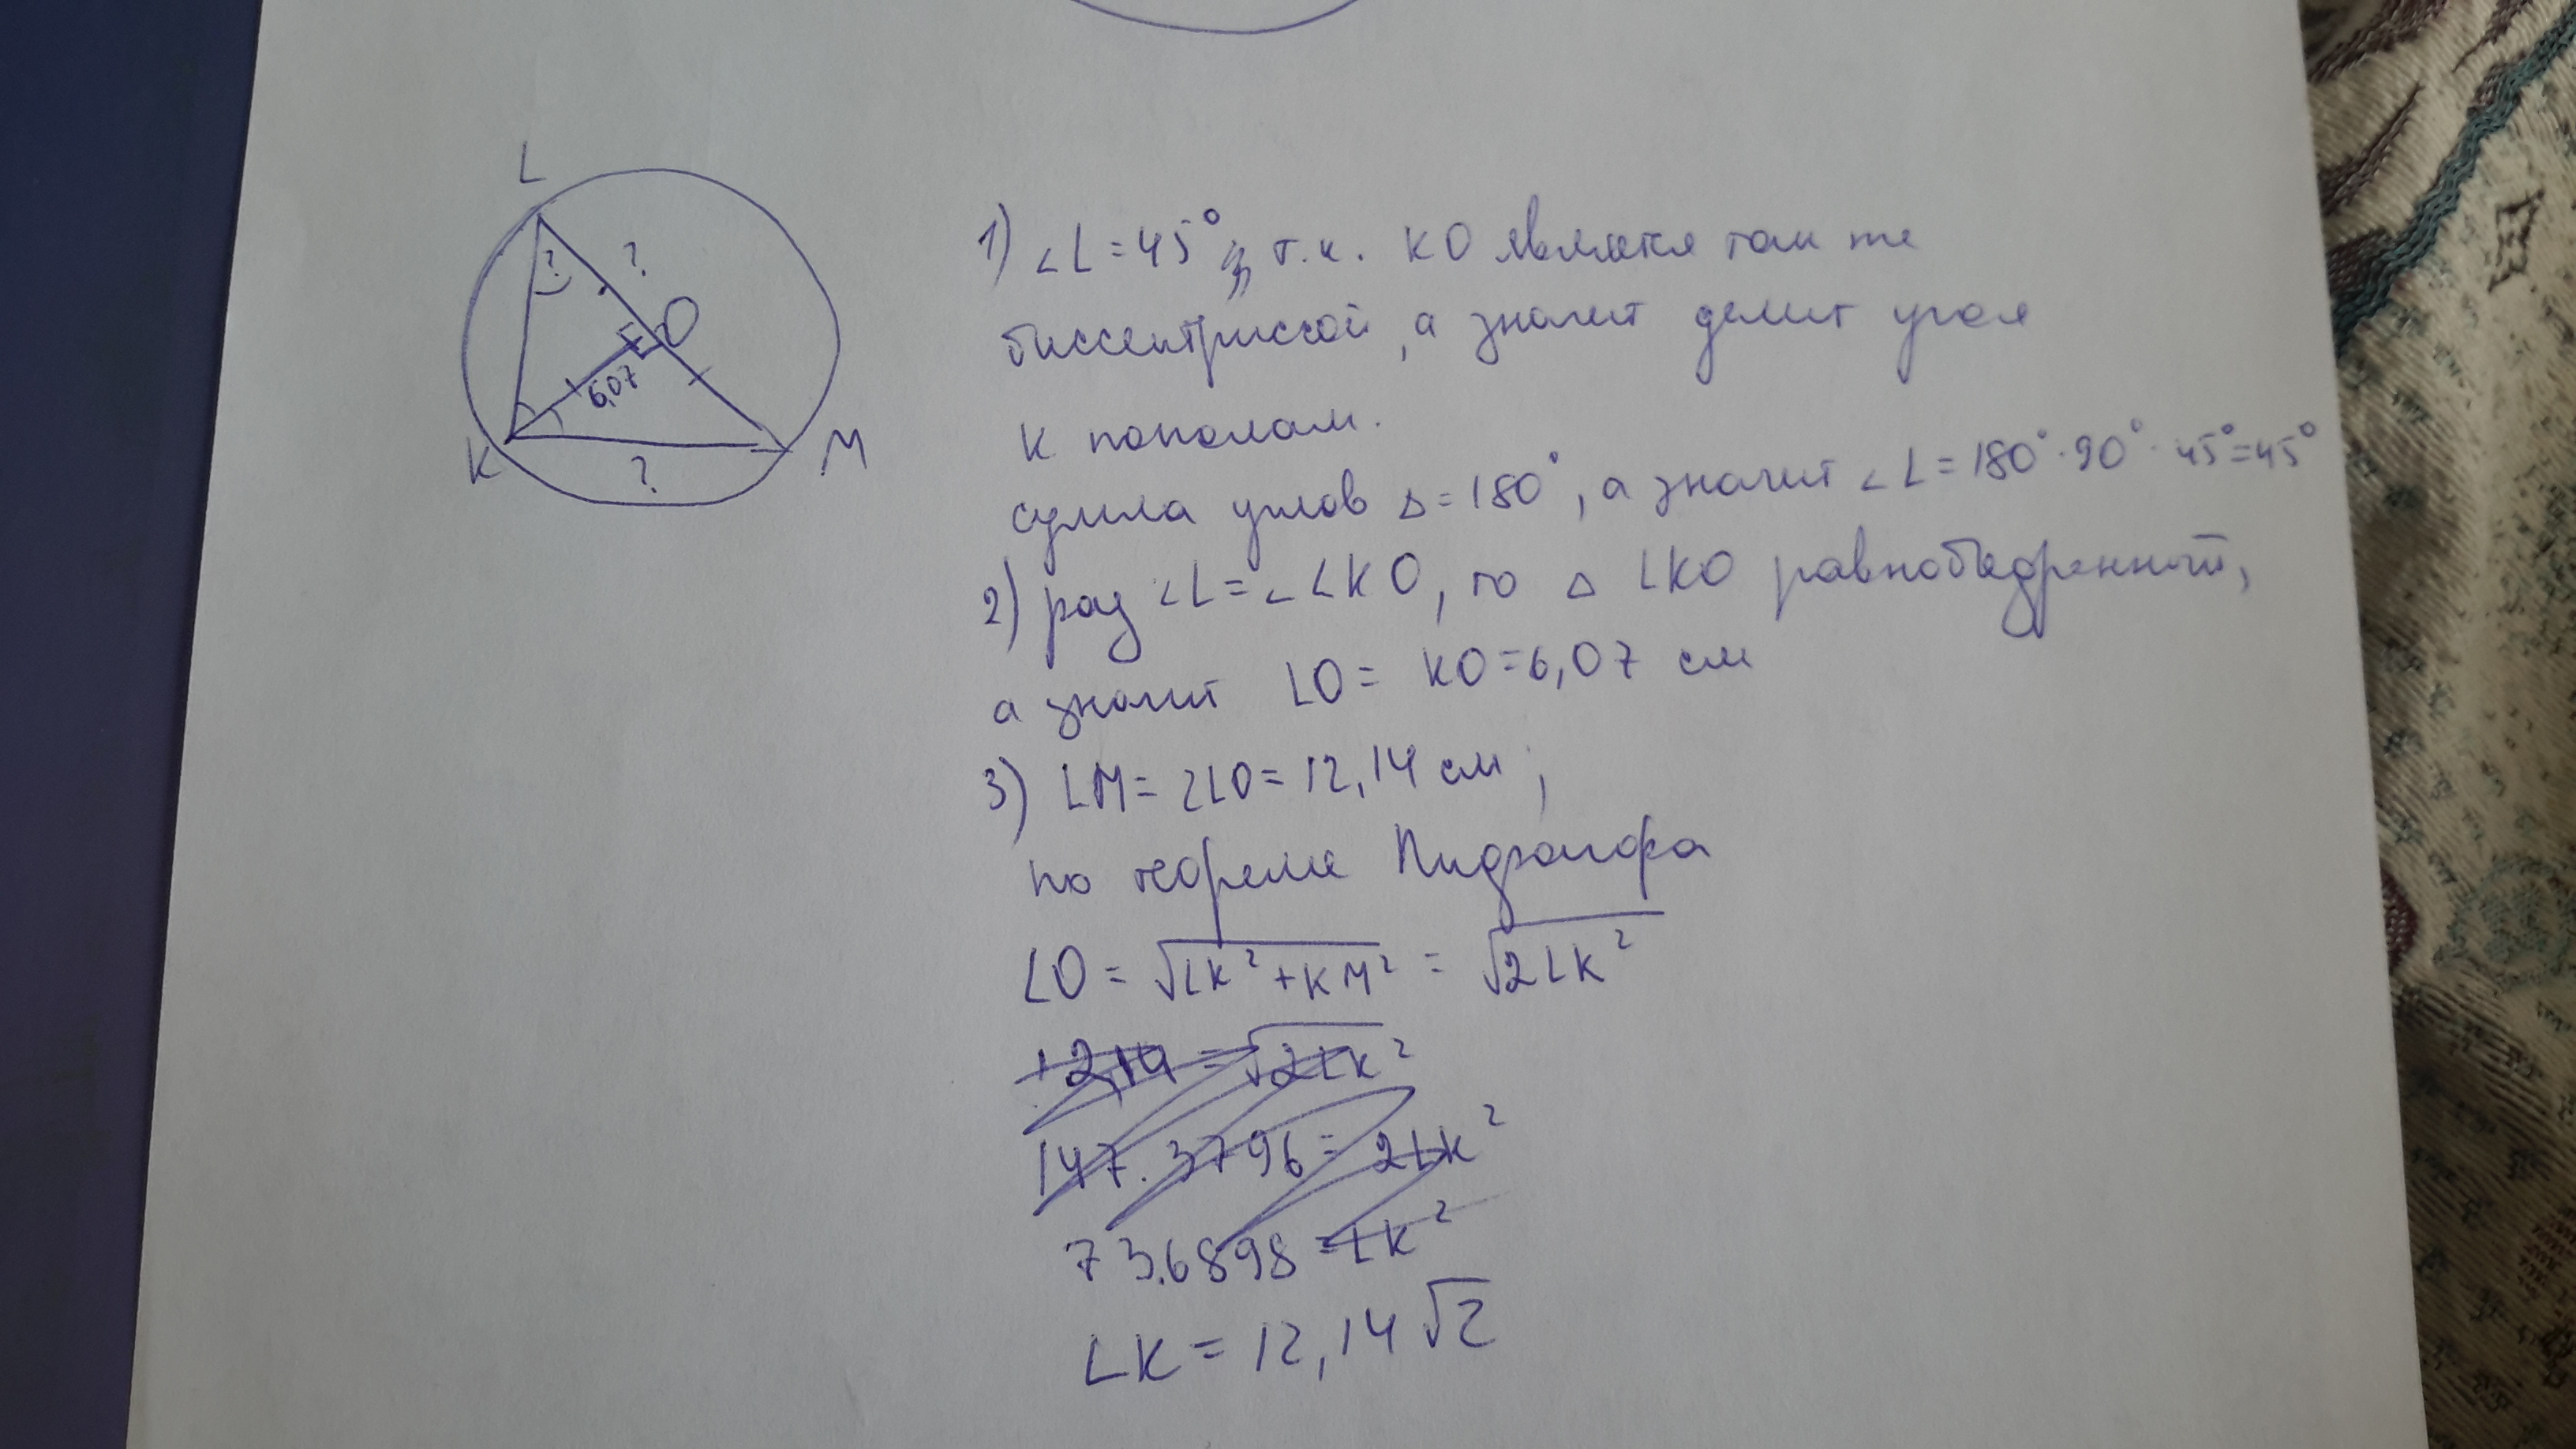 L
?
?
O
6,07
K
?
M
1) ∠L = 45°, т.к. KO является так же
биссектриссой, а значит делит угол
K пополам.
сумма углов Δ = 180°, а значит ∠L = 180° · 90° · 45° = 45°
2) раз ∠L = ∠LKO, то Δ LKO равнобедренный,
а значит LO = KO = 6,07 см
3) LM = 2LO = 12,14 см;
по теореме Пидзагора
LO = √LK² + KM² = √2LK²
12,14 = √2LK²
147.3796 = 2LK²
73.6898 = LK²
LK = 12,14√2